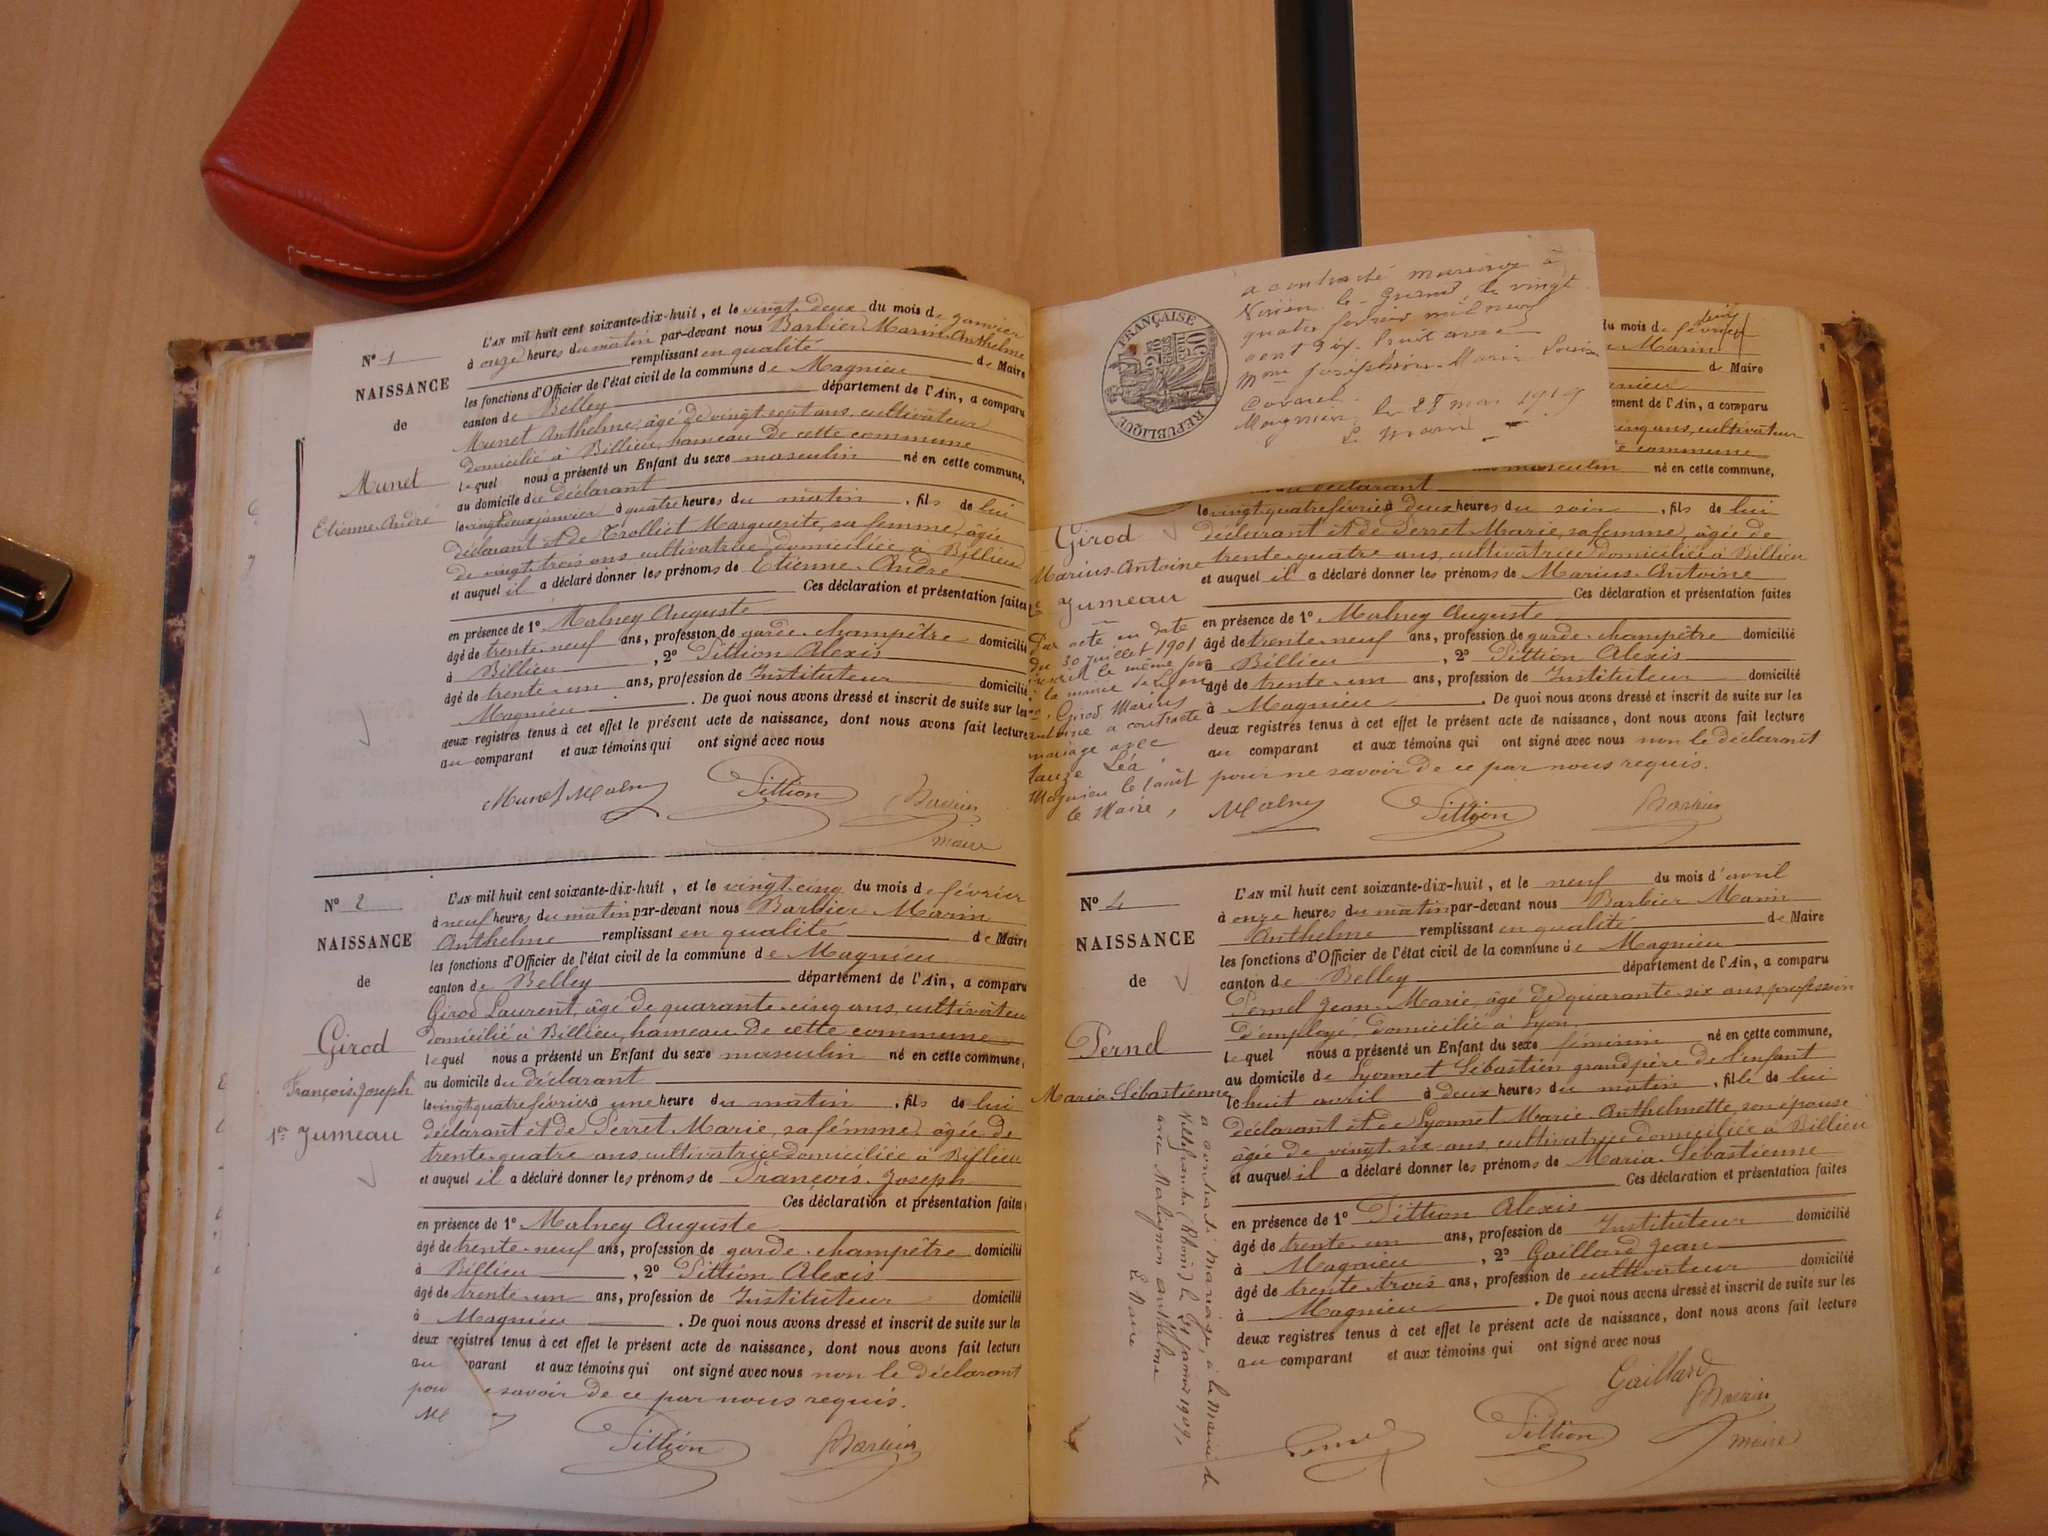 L'AN mil huit cent soixante-dix-huit, et le vingt-deux du mois de janvier
N° 1
à onze heures du matin par-devant nous Barbier Marin Anthelme
remplissant en qualité de Maire
NAISSANCE
les fonctions d'Officier de l'état civil de la commune de Magnieu
canton de Belley département de l'Ain, a comparu
de
Munet Anthelme, âgé de vingt sept ans, cultivateur
domicilié à Billieu, hameau de cette commune
Munet
lequel nous a présenté un Enfant du sexe masculin né en cette commune,
au domicile du déclarant
Etienne-André
le vingt deux janvier à quatre heures du matin, fils de lui
déclarant et de Trolliet Marguerite, sa femme, âgée
de vingt trois ans, cultivatrice domiciliée à Billieu
et auquel il a déclaré donner les prénoms de Etienne-André
Ces déclaration et présentation faites
en présence de 1° Malney Auguste
âgé de trente-neuf ans, profession de garde-champêtre domicilié
à Billieu, 2° Pittion Alexis
âgé de trente-un ans, profession de Instituteur domicilié
Magnieu. De quoi nous avons dressé et inscrit de suite sur les
deux registres tenus à cet effet le présent acte de naissance, dont nous avons fait lecture
au comparant et aux témoins qui ont signé avec nous
Munet Malney Pittion Barbier
maire
N° 2
L'AN mil huit cent soixante-dix-huit, et le vingt-cinq du mois de février
à neuf heures du matin par-devant nous Barbier Marin
NAISSANCE
Anthelme remplissant en qualité de Maire
les fonctions d'Officier de l'état civil de la commune de Magnieu
de
canton de Belley département de l'Ain, a comparu
Girod Laurent, âgé de quarante-cinq ans, cultivateur
Girod
domicilié à Billieu, hameau de cette commune
lequel nous a présenté un Enfant du sexe masculin né en cette commune,
François-Joseph
au domicile du déclarant
le vingt quatre février à une heure du matin, fils de lui
1er Jumeau
déclarant et de Perret Marie, sa femme, âgée de
trente-quatre ans, cultivatrice domiciliée à Billieu
et auquel il a déclaré donner les prénoms de François-Joseph
Ces déclaration et présentation faites
en présence de 1° Malney Auguste
âgé de trente-neuf ans, profession de garde-champêtre domicilié
à Billieu, 2° Pittion Alexis
âgé de trente-un ans, profession de Instituteur domicilié
à Magnieu. De quoi nous avons dressé et inscrit de suite sur les
deux registres tenus à cet effet le présent acte de naissance, dont nous avons fait lecture
au parant et aux témoins qui ont signé avec nous non le déclarant
pou savoir de ce par nous requis.
Pittion Barbier
a contracté mariage à
le vingt
quatre février mil neuf
cent dix-huit avec
Mme Joséphine Marie Louise
Magnieu le 28 mai 1919
Le Maire
RÉPUBLIQUE FRANÇAISE
du mois de février
Marin
de Maire
département de l'Ain, a comparu
cinq ans, cultivateur
cette commune
masculin né en cette commune,
déclarant
le vingt quatre février à deux heures du soir, fils de lui
Girod
déclarant et de Perret Marie, sa femme, âgée de
Marius-Antoine
trente-quatre ans, cultivatrice domiciliée à Billieu
et auquel il a déclaré donner les prénoms de Marius-Antoine
2e Jumeau
Ces déclaration et présentation faites
en présence de 1° Malney Auguste
âgé de trente-neuf ans, profession de garde-champêtre domicilié
à Billieu, 2° Pittion Alexis
âgé de trente-un ans, profession de Instituteur domicilié
à Magnieu. De quoi nous avons dressé et inscrit de suite sur les
deux registres tenus à cet effet le présent acte de naissance, dont nous avons fait lecture
au comparant et aux témoins qui ont signé avec nous non le déclarant
pour ne savoir de ce par nous requis.
Malney Pittion Barbier
Par acte en date
du 30 juillet 1901
inscrit le même jour
à la mairie de Lyon
Girod Marius
Antoine a contracté
mariage avec
Léa.
Magnieu le 1 août
le Maire,
N° 4
L'AN mil huit cent soixante-dix-huit, et le neuf du mois d'avril
à onze heures du matin par-devant nous Barbier Marin
NAISSANCE
Anthelme remplissant en qualité de Maire
les fonctions d'Officier de l'état civil de la commune de Magnieu
de
canton de Belley département de l'Ain, a comparu
Pernel Jean-Marie, âgé de quarante-six ans, profession
Pernel
d'employé, domicilié à Lyon
lequel nous a présenté un Enfant du sexe féminin né en cette commune,
au domicile de Lyonnet Sébastien grand père de l'enfant
Maria-Sébastienne
le huit avril à deux heures du matin, fille de lui
déclarant et de Lyonnet Marie-Anthelmette, son épouse
âgée de vingt-six ans, cultivatrice domiciliée à Billieu
et auquel il a déclaré donner les prénoms de Maria-Sébastienne
Ces déclaration et présentation faites
en présence de 1° Pittion Alexis
âgé de trente-un ans, profession de Instituteur domicilié
à Magnieu, 2° Gaillard Jean
âgé de trente-trois ans, profession de cultivateur domicilié
à Magnieu. De quoi nous avons dressé et inscrit de suite sur les
deux registres tenus à cet effet le présent acte de naissance, dont nous avons fait lecture
au comparant et aux témoins qui ont signé avec nous
Gaillard
Pernel Pittion Barbier
maire
a contracté mariage, à la Mairie de
(Rhône) le 21 janvier 1909,
avec Anthelme
Le Maire